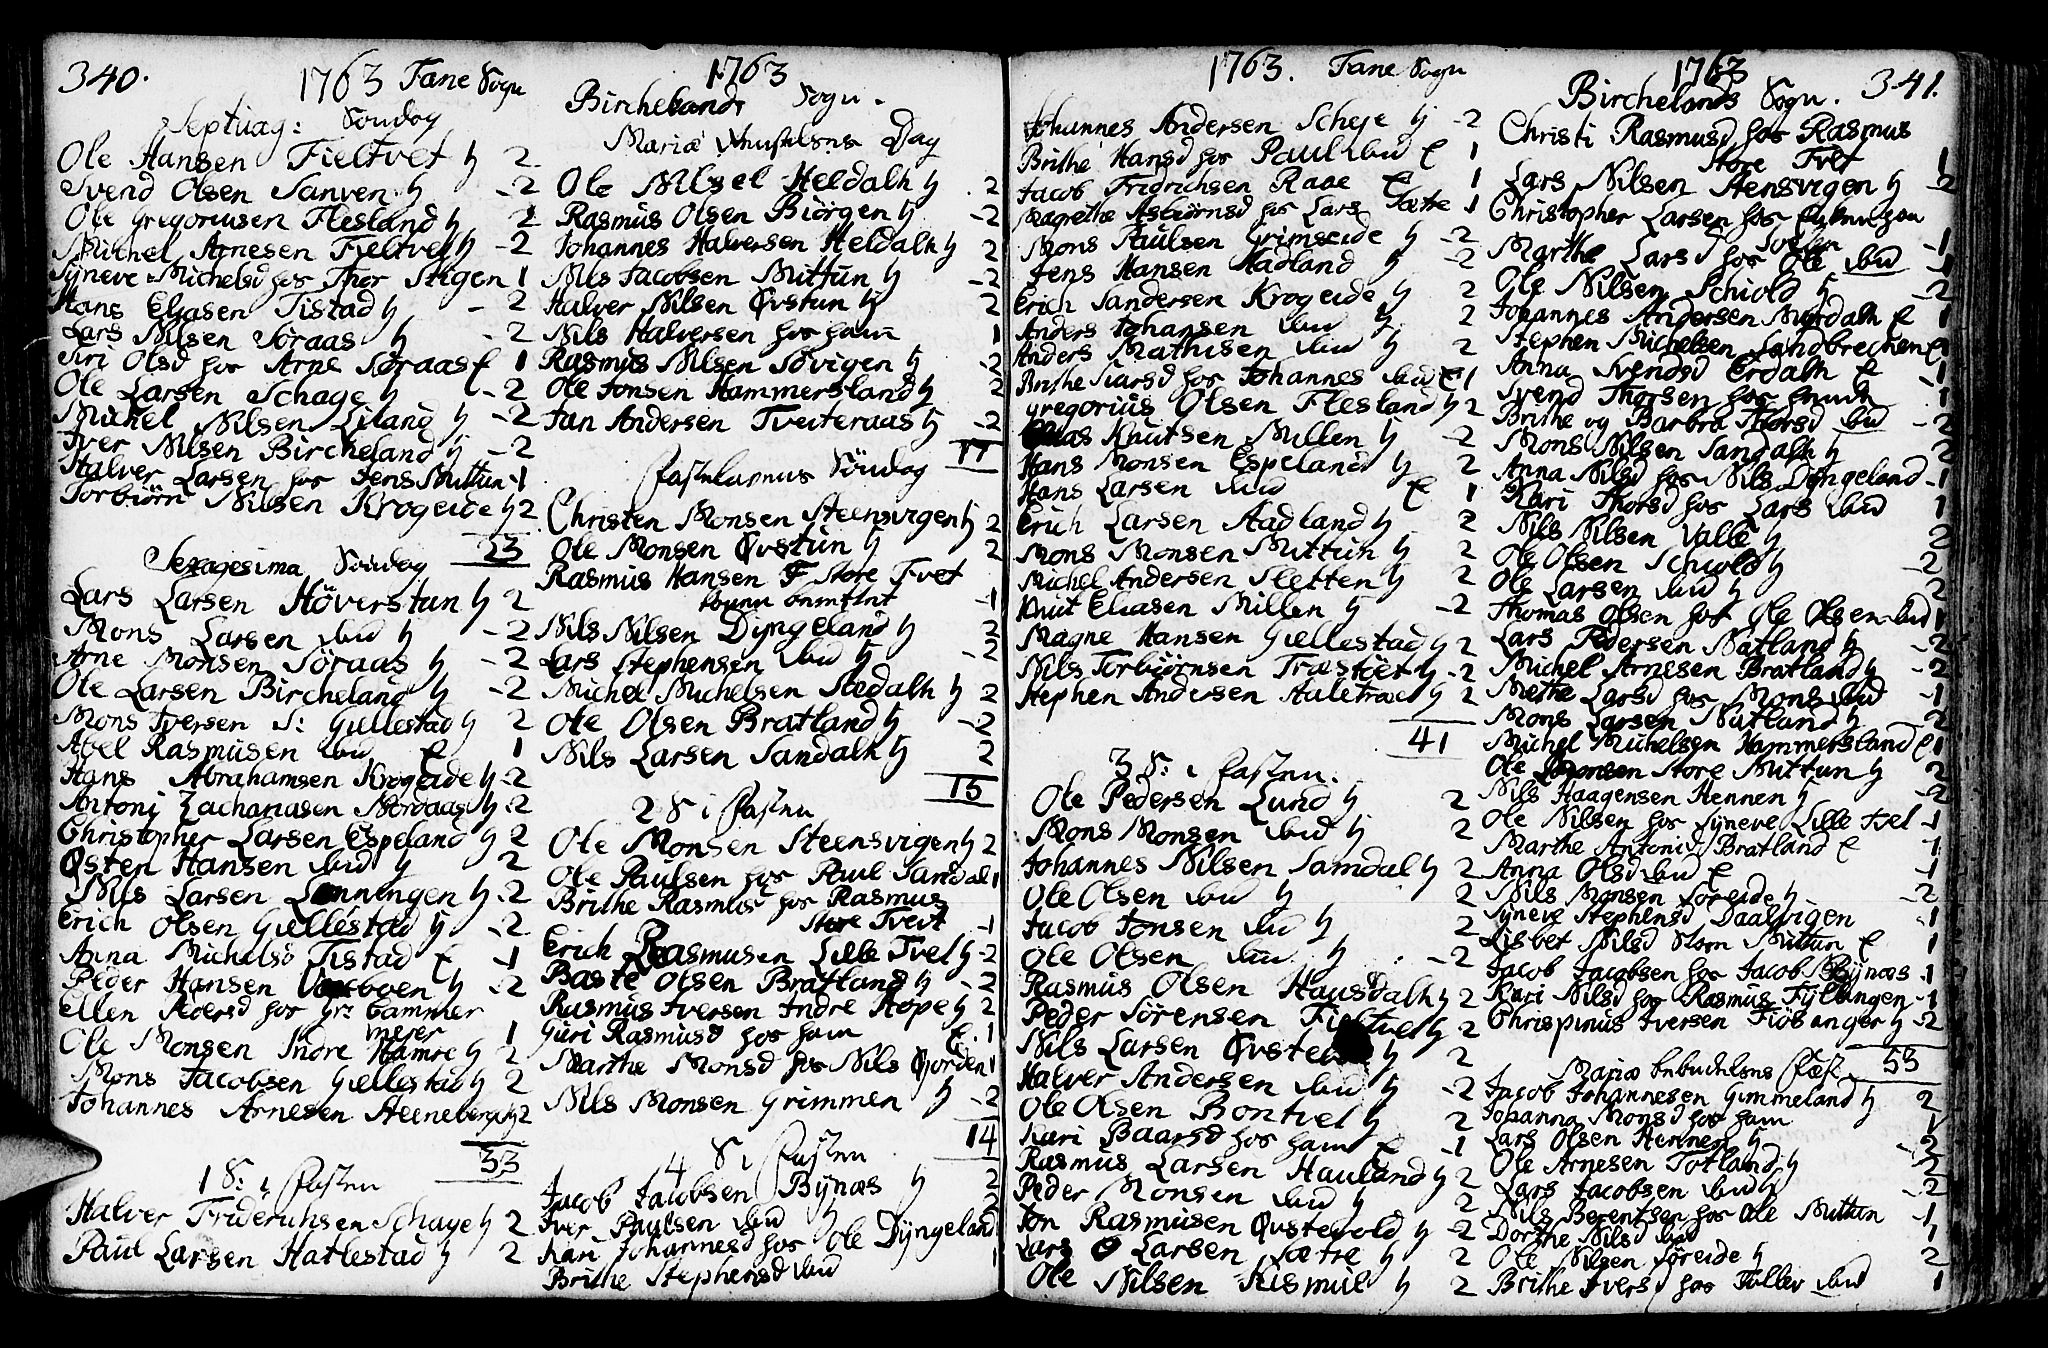 340.
1763 Fane Sogn
Septuag: Søndag
Ole Hansen Fieltvet h 2
Svend Olsen Sanven h 2
Ole Gregoriusen Flesland h 2
Michel Arnesen Fieltvet h 2
Syneve Michelsd hos Thor Stigen 1
Hans Eliasen Tistad h 2
Lars Nilsen Søraas h 2
Siri Olsd hos Arne Søraas E 1
Ole Larsen Schage h 2
Michel Nilsen Liland h 2
Iver Nilsen Bircheland h 2
Halver Larsen hos Jens Mittun 1
Torbiørn Nilsen Krogeide h 2
23
Sexagesima Søndag
Lars Larsen Høverstun h 2
Mons Larsen ibid h 2
Arne Monsen Søraas h 2
Ole Larsen Bircheland h 2
Mons Iversen S: Giellestad h 2
Abel Rasmusen ibid E 1
Hans Abrahamsen Krogeide h 2
Antonj Zachariasen Nordaas h 2
Christopher Larsen Espeland h 2
Østen Hansen ibid h 2
Nils Larsen Lønningen h 2
Erich Olsen Giellestad h 2
Anna Michelsd Tistad E 1
Peder Hansen h 2
Ellen Pedersd hos Hr: Cammer
meier 1
Ole Monsen Indre Hamre h 2
Mons Jacobsen Giellestad h 2
Johannes Arnesen Steeneberget h 2
33
1 S: i Fasten
Halver Friderichsen Schage h 2
Paul Larsen Hatlestad h 2
1763
Birchelands Sogn.
Mariæ Dag
Ole Nilsel Heldalh h 2
Rasmus Olsen Biørgen h 2
Johannes Halversen Heldalh h 2
Nils Jacobsen Mittun h 2
Halver Nilsen Øvstun h 2
Nils Halversen hos ham 1
Rasmus Nilsen Søvigen h 2
Ole Jonsen Hammersland h 2
Jan Andersen Tveiteraas h 2
17
Fastelavns Søndag
Christen Monsen Steensvigen h 2
Ole Monsen Øvstun h 2
Rasmus Hansen F Store Tvet
1
Nils Nilsen Dyngeland h 2
Lars Stephensen ibid h 2
Michel Michelsen Stedalh h 2
Ole Olsen Bratland h 2
Nils Larsen Sandalh h 2
15
2 S i Fasten
Ole Monsen Steensvigen h 2
Ole Paulsen hos Paul Sandal 1
Brithe Rasmus hos Rasmus
Store Tveit 1
Erich Rasmusen Lille Tvet h 2
Baste Olsen Bratland h 2
Rasmus Iversen Indre Hope h 2
Guri Rasmusd hos ham E 1
Marthe Monsd hos Nils 1
Nils Monsen Grimmen h 2
14
4 S i Fasten
Jacob Jacobsen Bynæs h 2
Iver Paulsen ibid h 2
Kari Johannesd hos Ole Dyngeland
Brithe Stephensd ibid 1
1763. Fane Sogn
Johannes Andersen Scheje h 2
Brithe Hansd hos Paul ibid E 1
Jacob Fridrichsen Raae E 1
Magrethe Asbiørnsd hos Lars Sætre 1
Mons Paulsen Grimseide h 2
Jens Hansen Hadland h 2
Erich Sandersen Krogeide h 2
Anders Johansen ibid h 2
Anders Mathisen ibid h 2
Brithe Siursd hos Johannes ibid E 1
Gregorius Olsen Flesland h 2
Knutsen Millen h 2
Hans Monsen Espeland h 2
Hans Larsen ibid E 1
Erich Larsen Aadland h 2
Mons Monsen Mittun h 2
Michel Andersen Sletten h 2
Knut Eliasen Millen h 2
Magne Hansen Giellestad h 2
Nils Torbiørnsen Træstøet h 2
Stephen Andersen Aaletræe h 2
41
3 S: i Fasten.
Ole Pedersen Lund h 2
Mons Monsen ibid h 2
Johannes Nilsen Samdal h 2
Ole Olsen ibid h 2
Jacob Jonsen ibid h 2
Ole Olsen ibid h 2
Rasmus Olsen Hausdalh h 2
Peder Sørensen h 2
Nils Larsen h 2
Halver Andersen ibid h 2
Ole Olsen Bontvet h 2
Kari Baarsd hos ham E 1
Rasmus Larsen Hauland h 2
Peder Monsen ibid h 2
Jon Rasmusen Øvstevold h 2
Lars Larsen Sætre h 2
Ole Nilsen Rismul h 2
1763 341.
Birchelands Sogn.
Christi Rasmusd hos Rasmus
Store Tvet 1
Lars Nilsen Stensvigen h 2
Christopher Larsen hos
1
Marthe Larsd hos Ole ibid 1
Ole Nilsen Schiold h 2
Johannes Andersen Mørdalh E 1
Stephen Michelsen Sandbrecken E 1
Anna Svendsd Erdalh E 1
Svend Thorsen hos 1
Brithe og Barbra Thorsd ibid 2
Mons Nilsen Sandalh h 2
Anna Nilsd hos Nils Dyngeland 1
Kari Thorsd hos Lars ibid 1
Nils Nilsen Valle h 2
Ole Olsen Schiold h 2
Ole Larsen ibid h 2
Thomas Olsen hos Ole Olsen ibid 1
Lars Pedersen Natland h 2
Michel Arnesen Bratland h 2
Methe Larsd hos Mons ibid 1
Mons Larsen Natland h 2
Michel Michelsen Hammersland E 1
Ole Monsen Store Mittun h 2
Nils Haagensen Hennen h 2
Ole Nilsen hos Syneve Lille Tvet 1
Marthe Antonisd Bratland E 1
Anna Olsd ibid E 1
Nils Monsen Søreide h 2
Syneve Stephensd Daalvigen 1
Lisbet Nilsd Store Mittun E 1
Jacob Jacobsen hos Jacob Bynæs 1
Kari Nilsd hos Rasmus Fyllingen 1
Chrispinus Iversen Fiøsanger h 2
53
Mariæ Bebudelses Fæst
Jacob Johannesen Gimmeland h 2
Johanna Monsd hos ham 1
Lars Olsen Hennen h 2
Ole Arnesen Totland h 2
Lars Jacobsen ibid h 2
Nils Berentsen hos Ole Mittun 1
Dorthe Nilsd ibid 1
Ole Nilsen Søreide h 2
Brithe Iversd hos Tollev ibid 1